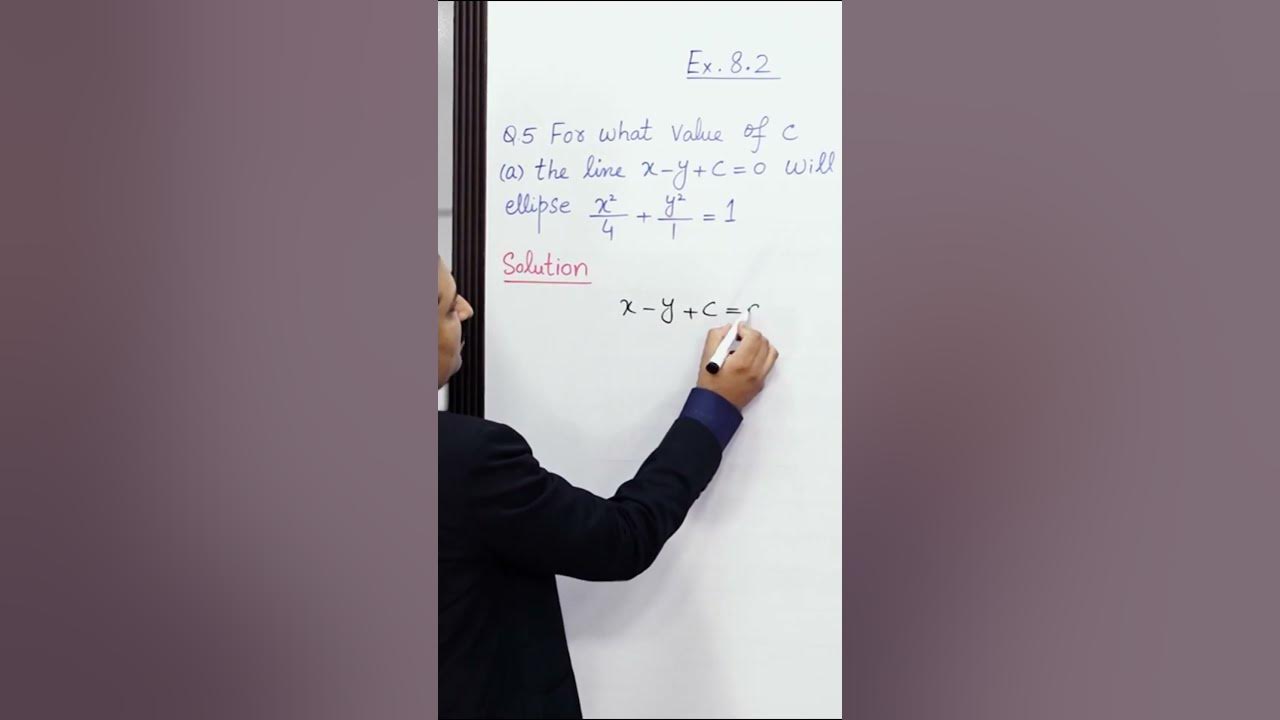 Ex. 8.2
Q.5 For what value of c
(a) the line x-y+c=0 will
ellipse x²/4 + y²/1 = 1
Solution
x-y+c=0